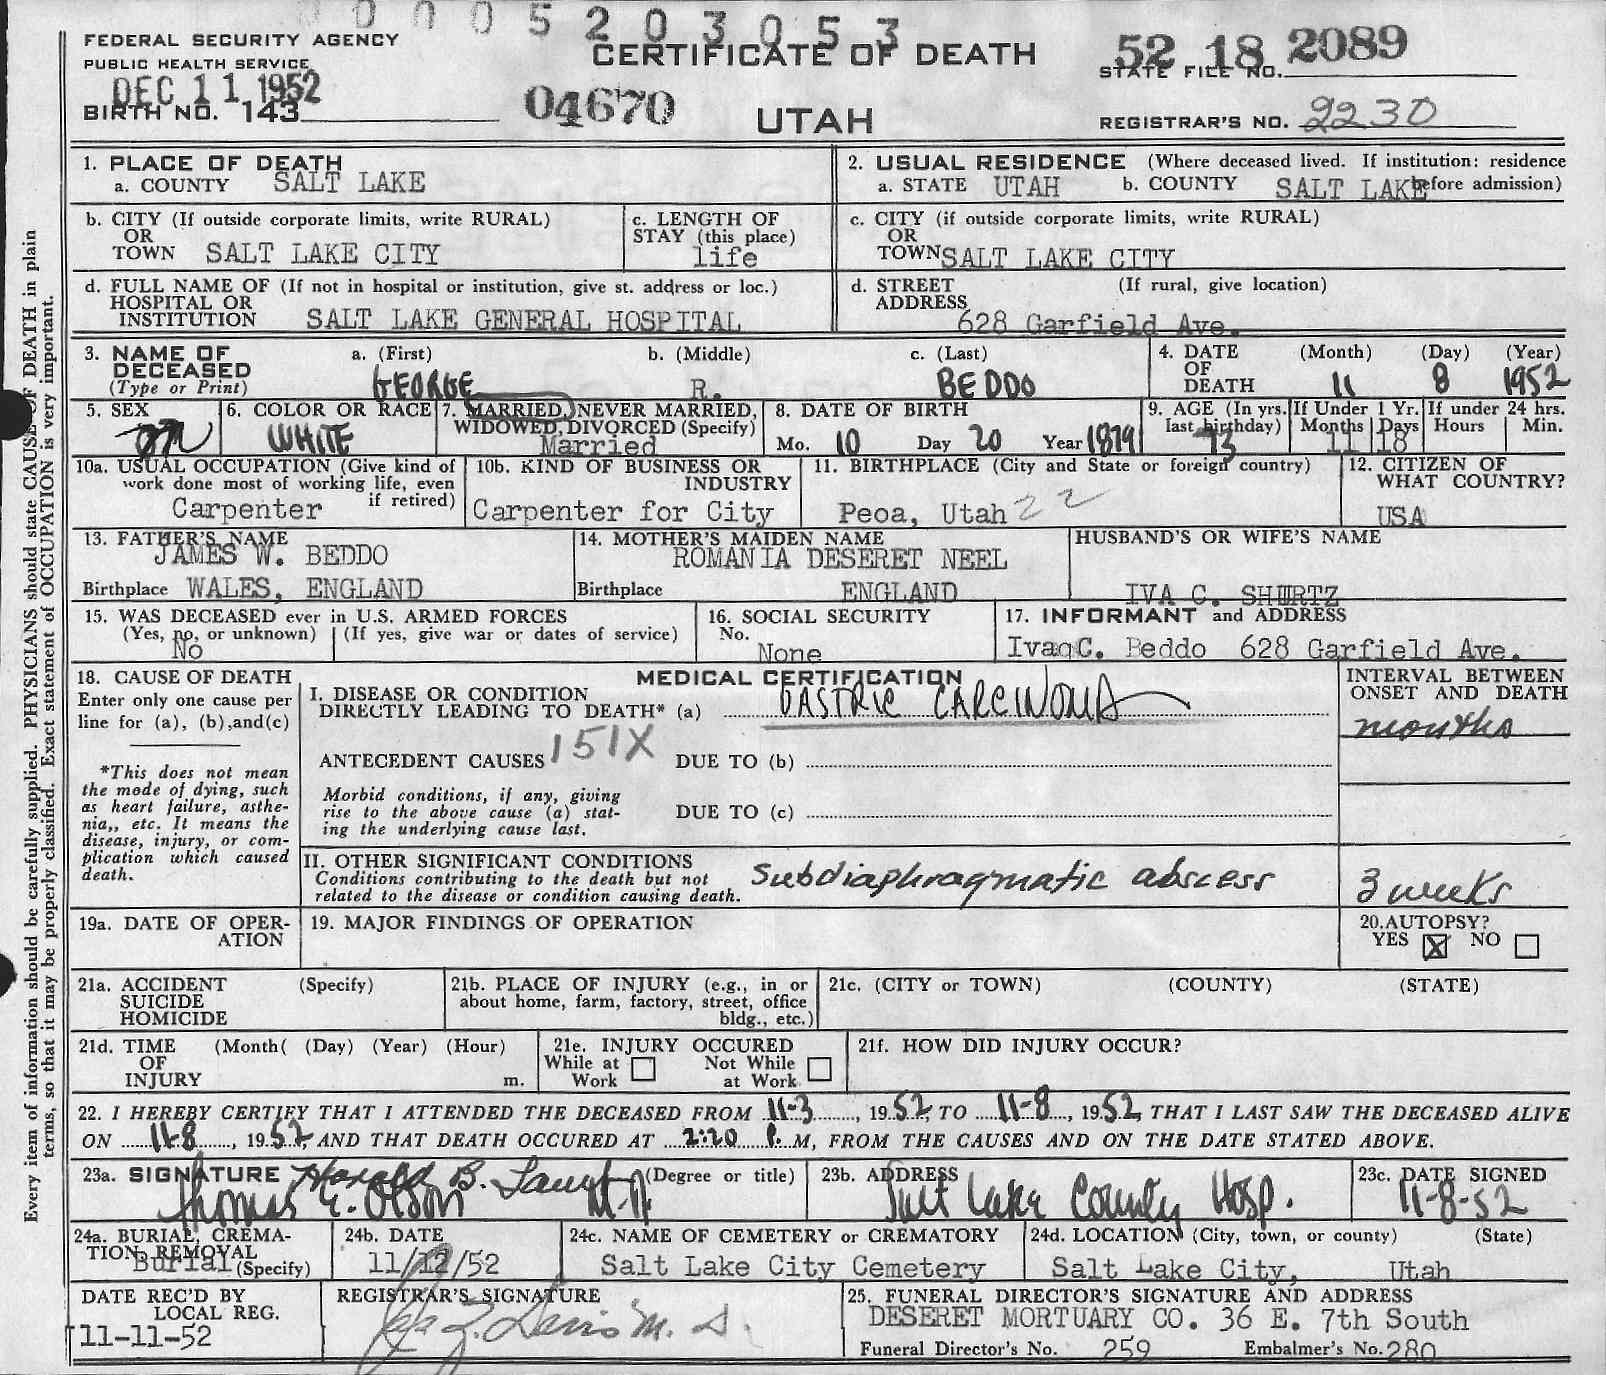 0 0 0 5 2 0 3 0 5 3
FEDERAL SECURITY AGENCY
PUBLIC HEALTH SERVICE
CERTIFICATE OF DEATH
52 18 2089
STATE FILE NO.
DEC 11 1952
BIRTH NO. 143
04670
UTAH
REGISTRAR'S NO. 2230
1. PLACE OF DEATH
a. COUNTY SALT LAKE
2. USUAL RESIDENCE (Where deceased lived. If institution: residence before admission)
a. STATE UTAH b. COUNTY SALT LAKE
b. CITY (If outside corporate limits, write RURAL)
OR
TOWN SALT LAKE CITY
c. LENGTH OF
STAY (this place)
life
c. CITY (if outside corporate limits, write RURAL)
OR
TOWN SALT LAKE CITY
d. FULL NAME OF (If not in hospital or institution, give st. address or loc.)
HOSPITAL OR
INSTITUTION SALT LAKE GENERAL HOSPITAL
d. STREET (If rural, give location)
ADDRESS
628 Garfield Ave.
3. NAME OF
DECEASED
(Type or Print)
a. (First) b. (Middle) c. (Last)
GEORGE R. BEDDO
4. DATE
OF
DEATH
(Month) (Day) (Year)
11 8 1952
5. SEX
M
6. COLOR OR RACE
WHITE
7. MARRIED, NEVER MARRIED,
WIDOWED, DIVORCED (Specify)
Married
8. DATE OF BIRTH
Mo. 10 Day 20 Year 1879
9. AGE (In yrs.
last birthday)
73
If Under 1 Yr.
Months Days
11 18
If under 24 hrs.
Hours Min.
10a. USUAL OCCUPATION (Give kind of
work done most of working life, even
if retired)
Carpenter
10b. KIND OF BUSINESS OR
INDUSTRY
Carpenter for City
11. BIRTHPLACE (City and State or foreign country)
Peoa, Utah 22
12. CITIZEN OF
WHAT COUNTRY?
USA
13. FATHER'S NAME
JAMES W. BEDDO
Birthplace WALES, ENGLAND
14. MOTHER'S MAIDEN NAME
ROMANIA DESERET NEEL
Birthplace ENGLAND
HUSBAND'S OR WIFE'S NAME
IVA C. SHURTZ
15. WAS DECEASED ever in U.S. ARMED FORCES
(Yes, no, or unknown) (If yes, give war or dates of service)
No
16. SOCIAL SECURITY
No.
None
17. INFORMANT and ADDRESS
Iva C. Beddo 628 Garfield Ave.
18. CAUSE OF DEATH
Enter only one cause per
line for (a), (b), and (c)
*This does not mean
the mode of dying, such
as heart failure, asthe-
nia,, etc. It means the
disease, injury, or com-
plication which caused
death.
MEDICAL CERTIFICATION
I. DISEASE OR CONDITION
DIRECTLY LEADING TO DEATH* (a) GASTRIC CARCINOMA
ANTECEDENT CAUSES 151X DUE TO (b)
Morbid conditions, if any, giving
rise to the above cause (a) stat-
ing the underlying cause last.
DUE TO (c)
INTERVAL BETWEEN
ONSET AND DEATH
months
II. OTHER SIGNIFICANT CONDITIONS
Conditions contributing to the death but not
related to the disease or condition causing death.
Subdiaphragmatic abscess
3 weeks
19a. DATE OF OPER-
ATION
19. MAJOR FINDINGS OF OPERATION
20. AUTOPSY?
YES X NO
21a. ACCIDENT (Specify)
SUICIDE
HOMICIDE
21b. PLACE OF INJURY (e.g., in or
about home, farm, factory, street, office
bldg., etc.)
21c. (CITY or TOWN) (COUNTY) (STATE)
21d. TIME (Month( (Day) (Year) (Hour)
OF
INJURY m.
21e. INJURY OCCURED
While at Work Not While at Work
21f. HOW DID INJURY OCCUR?
22. I HEREBY CERTIFY THAT I ATTENDED THE DECEASED FROM 11-3, 1952, TO 11-8, 1952, THAT I LAST SAW THE DECEASED ALIVE
ON 11-8, 1952, AND THAT DEATH OCCURED AT 2:20 P. M, FROM THE CAUSES AND ON THE DATE STATED ABOVE.
23a. SIGNATURE Harold B. (Degree or title)
Thomas E. Olson M.D.
23b. ADDRESS
Salt Lake County Hosp.
23c. DATE SIGNED
11-8-52
24a. BURIAL, CREMA-
TION, REMOVAL
Burial (Specify)
24b. DATE
11/12/52
24c. NAME OF CEMETERY or CREMATORY
Salt Lake City Cemetery
24d. LOCATION (City, town, or county) (State)
Salt Lake City, Utah
DATE REC'D BY
LOCAL REG.
11-11-52
REGISTRAR'S SIGNATURE
M.D.
25. FUNERAL DIRECTOR'S SIGNATURE AND ADDRESS
DESERET MORTUARY CO. 36 E. 7th South
Funeral Director's No. 259 Embalmer's No. 280
Every item of information should be carefully supplied. PHYSICIANS should state CAUSE OF DEATH in plain
terms, so that it may be properly classified. Exact statement of OCCUPATION is very important.